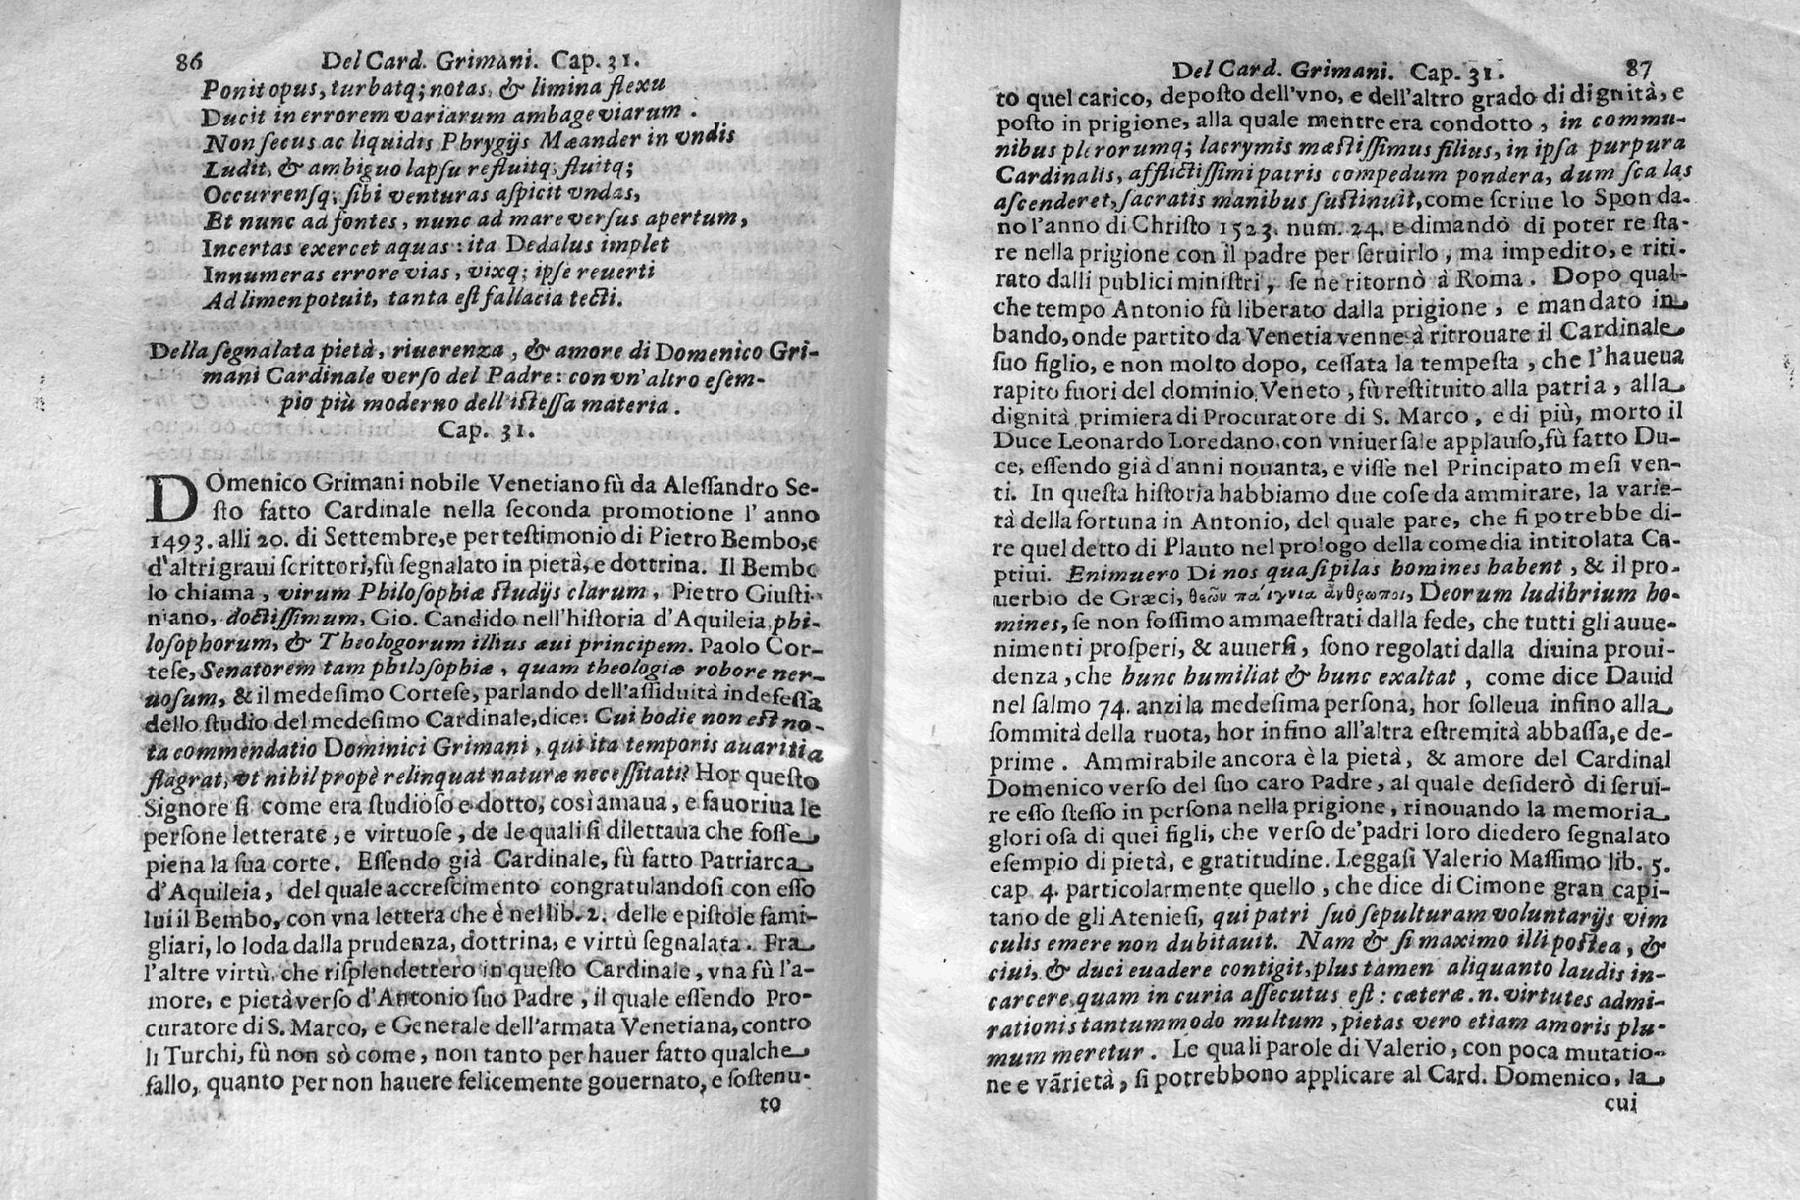 86 Del Card. Grimani. Cap. 31.
Ponit opus, turbatq; notas, & limina flexu
Ducit in errorem variarum ambage viarum.
Non ſecus ac liquidis Phrygijs Mæander in vndis
Ludit, & ambiguo lapſu refluitq; fluitq;
Occurrenſq; ſibi venturas aſpicit vndas,
Et nunc ad fontes, nunc ad mare verſus apertum,
Incertas exercet aquas: ita Dedalus implet
Innumeras errore vias, vixq; ipſe reuerti
Ad limen potuit, tanta eſt fallacia tecti.
Della ſegnalata pietà, riuerenza, & amore di Domenico Gri-
mani Cardinale verſo del Padre: con vn'altro eſem-
pio più moderno dell'iſteſſa materia.
Cap. 31.
DOmenico Grimani nobile Venetiano fù da Aleſſandro Se-
ſto fatto Cardinale nella ſeconda promotione l'anno
1493. alli 20. di Settembre, e per teſtimonio di Pietro Bembo, e
d'altri graui ſcrittori, fù ſegnalato in pietà, e dottrina. Il Bembo
lo chiama, virum Philoſophiæ ſtudijs clarum, Pietro Giuſti-
niano, doctiſſimum, Gio. Candido nell'hiſtoria d'Aquileia, phi-
loſophorum, & Theologorum illius æui principem. Paolo Cor-
teſe, Senatorem tam philoſophiæ, quam theologiæ robore ner-
uoſum, & il medeſimo Corteſe, parlando dell'aſſiduità indefeſſa
dello ſtudio del medeſimo Cardinale, dice: Cui hodie non eſt no-
ta commendatio Dominici Grimani, qui ita temporis auaritia
flagrat, vt nihil propè relinquat naturæ neceſſitati? Hor queſto
Signore ſi come era ſtudioſo e dotto, così amaua, e fauoriua le
perſone letterate, e virtuoſe, de le quali ſi dilettaua che foſſe
piena la ſua corte. Eſſendo già Cardinale, fù fatto Patriarca
d'Aquileia, del quale accreſcimento congratulandoſi con eſſo
lui il Bembo, con vna lettera che è nel lib. 2. delle epiſtole fami-
gliari, lo loda dalla prudenza, dottrina, e virtù ſegnalata. Fra
l'altre virtù che riſplendettero in queſto Cardinale, vna fù l'a-
more, e pietà verſo d'Antonio ſuo Padre, il quale eſſendo Pro-
curatore di S. Marco, e Generale dell'armata Venetiana, contro
li Turchi, fù non sò come, non tanto per hauer fatto qualche
fallo, quanto per non hauere felicemente gouernato, e ſoſtenu-
to
Del Card. Grimani. Cap. 31. 87
to quel carico, depoſto dell'vno, e dell'altro grado di dignità, e
poſto in prigione, alla quale mentre era condotto, in commu-
nibus plerorumq; lacrymis mæſtiſſimus filius, in ipſa purpura
Cardinalis, afflictiſſimi patris compedum pondera, dum ſcalas
aſcenderet, ſacratis manibus ſuſtinuit, come ſcriue lo Sponda-
no l'anno di Chriſto 1523. num. 24. e dimandò di poter reſta-
re nella prigione con il padre per ſeruirlo, ma impedito, e riti-
rato dalli publici miniſtri, ſe ne ritornò à Roma. Dopo qual-
che tempo Antonio fù liberato dalla prigione, e mandato in
bando, onde partito da Venetia venne à ritrouare il Cardinale
ſuo figlio, e non molto dopo, ceſſata la tempeſta, che l'haueua
rapito fuori del dominio Veneto, fù reſtituito alla patria, alla
dignità primiera di Procuratore di S. Marco, e di più, morto il
Duce Leonardo Loredano, con vniuerſale applauſo, fù fatto Du-
ce, eſſendo già d'anni nouanta, e viſſe nel Principato meſi ven-
ti. In queſta hiſtoria habbiamo due coſe da ammirare, la varie-
tà della fortuna in Antonio, del quale pare, che ſi potrebbe di-
re quel detto di Plauto nel prologo della comedia intitolata Ca-
ptiui. Enimuero Di nos quaſi pilas homines habent, & il pro-
uerbio de Græci, θεῶν παίγνια ἄνθρωποι, Deorum ludibrium ho-
mines, ſe non foſſimo ammaeſtrati dalla fede, che tutti gli auue-
nimenti proſperi, & auuerſi, ſono regolati dalla diuina proui-
denza, che hunc humiliat & hunc exaltat, come dice Dauid
nel ſalmo 74. anzi la medeſima perſona, hor ſolleua infino alla
ſommità della ruota, hor infino all'altra eſtremità abbaſſa, e de-
prime. Ammirabile ancora è la pietà, & amore del Cardinal
Domenico verſo del ſuo caro Padre, al quale deſiderò di ſerui-
re eſſo ſteſſo in perſona nella prigione, rinouando la memoria
glorioſa di quei figli, che verſo de'padri loro diedero ſegnalato
eſempio di pietà, e gratitudine. Leggaſi Valerio Maſſimo lib. 5.
cap. 4. particolarmente quello, che dice di Cimone gran capi-
tano de gli Atenieſi, qui patri ſuo ſepulturam voluntarijs vim
culis emere non dubitauit. Nam & ſi maximo illi poſtea, &
ciui, & duci euadere contigit, plus tamen aliquanto laudis in
carcere, quam in curia aſſecutus eſt: cæteræ.n.virtutes admi-
rationis tantummodo multum, pietas vero etiam amoris plu-
mum meretur. Le quali parole di Valerio, con poca mutatio-
ne e varietà, ſi potrebbono applicare al Card. Domenico, la
cui